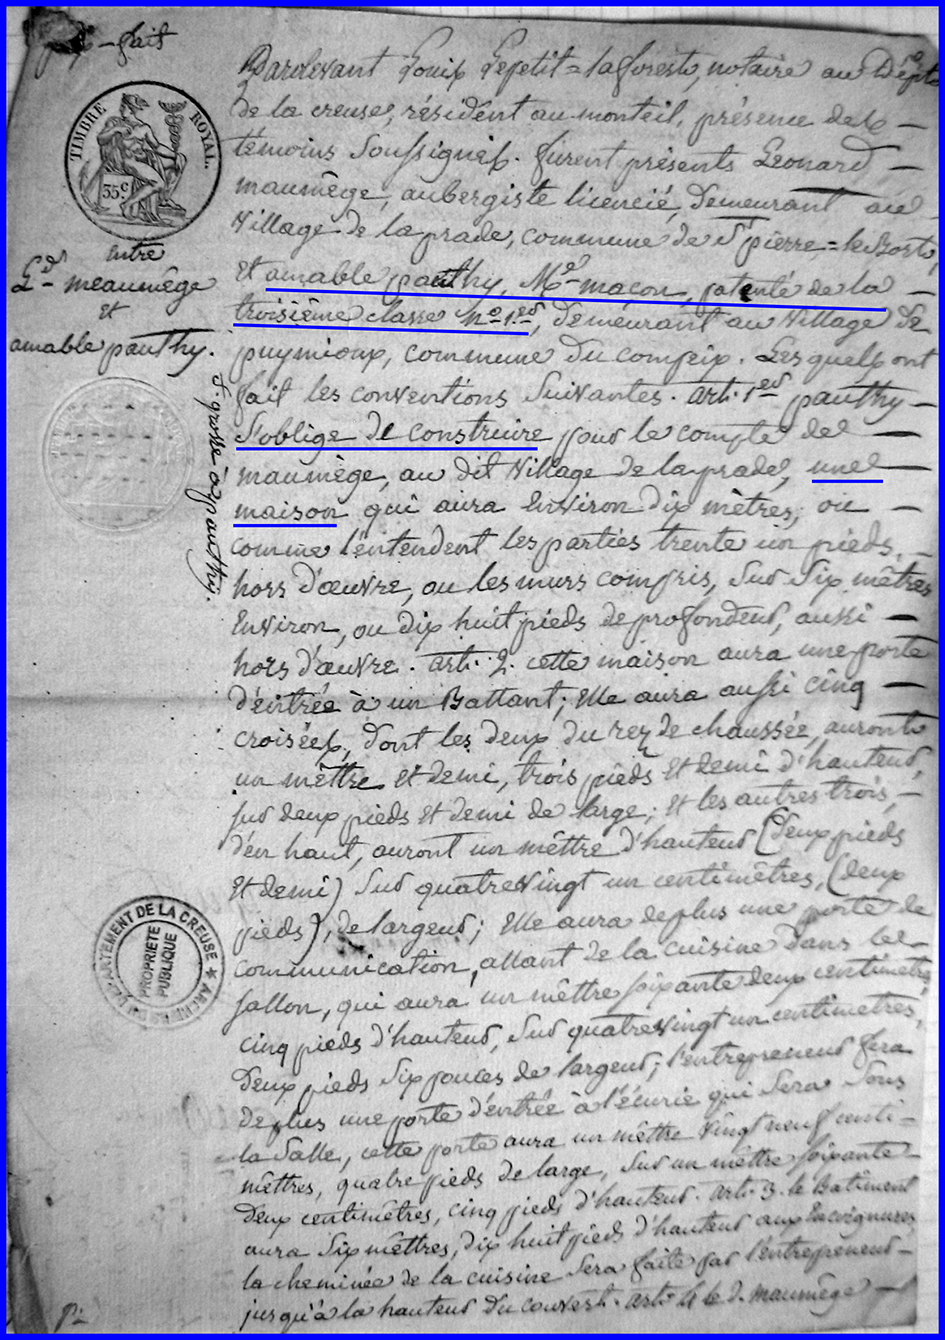 prix-fait
TIMBRE ROYAL.
35c
entre
Ld. meaumège
et
amable pauthy.
f. grosse à pauthy.
Pardevant Louix Lepetit=laforest, notaire au Dépt.
De la creuse, résident au monteil, présence de
témoins Soussignés. furent présents Leonard
maumège, aubergiste licencié, demeurant au
Village de laprade, commune de St pierre=le Bost,
Et amable pauthy, Me maçon, patenté de la
troisième classe No. 1er, demeurant au Village De
puymioux, commune du compeix. Les quels ont
fait les conventions Suivantes. art. 1er pauthy
S'oblige de construire pour le compte de
maumège, au dit Village de laprade, une
maison qui aura Environ dix mètres, ou
comme l'entendent les parties trente un pieds,
hors d'œuvre, ou les murs compris, Sur Six mètres
Environ, ou dix huit pieds de profondeur, aussi
hors d'œuvre. art. 2. cette maison aura une porte
d'éntrée à un Battant; Elle aura aussi cinq
croisées, dont les deux du rez de chaussée, auront
un mêttre et demi, trois pieds et demi d'hauteur,
sur deux pieds et demi de large; Et les autres trois,
d'en haut, auront un mêttre d'hauteur (deux pieds
Et demi) Sur quatrevingt un centimêtres, (deux
pieds), de largeur; Elle aura deplus une porte de
communication, allant de la cuisine Dans le
sallon, qui aura un mêttre soixante deux centimetres
cinq pieds d'hauteur, Sur quatrevingt un centimetres,
Deux pieds Six pouces de largeur; l'entrepreneur fera
De plus une porte d'entrée à l'écurie qui Sera Sous
la Salle, cette porte aura un mêttre Vingt neuf centi-
mêttres, quatre pieds de large, Sur un mêttre soixante
Deux centimêtres, cinq pieds d'hauteur. art. 3. le Batiment
aura Six mêttres, dix huit pieds d'hauteur aux Encoignures,
la cheminée de la cuisine Sera faite par l'entrepreneur
jusqu'à la hauteur du couvert. art. 4 le d. maumège
DÉPARTEMENT DE LA CREUSE
PROPRIETE
PUBLIQUE